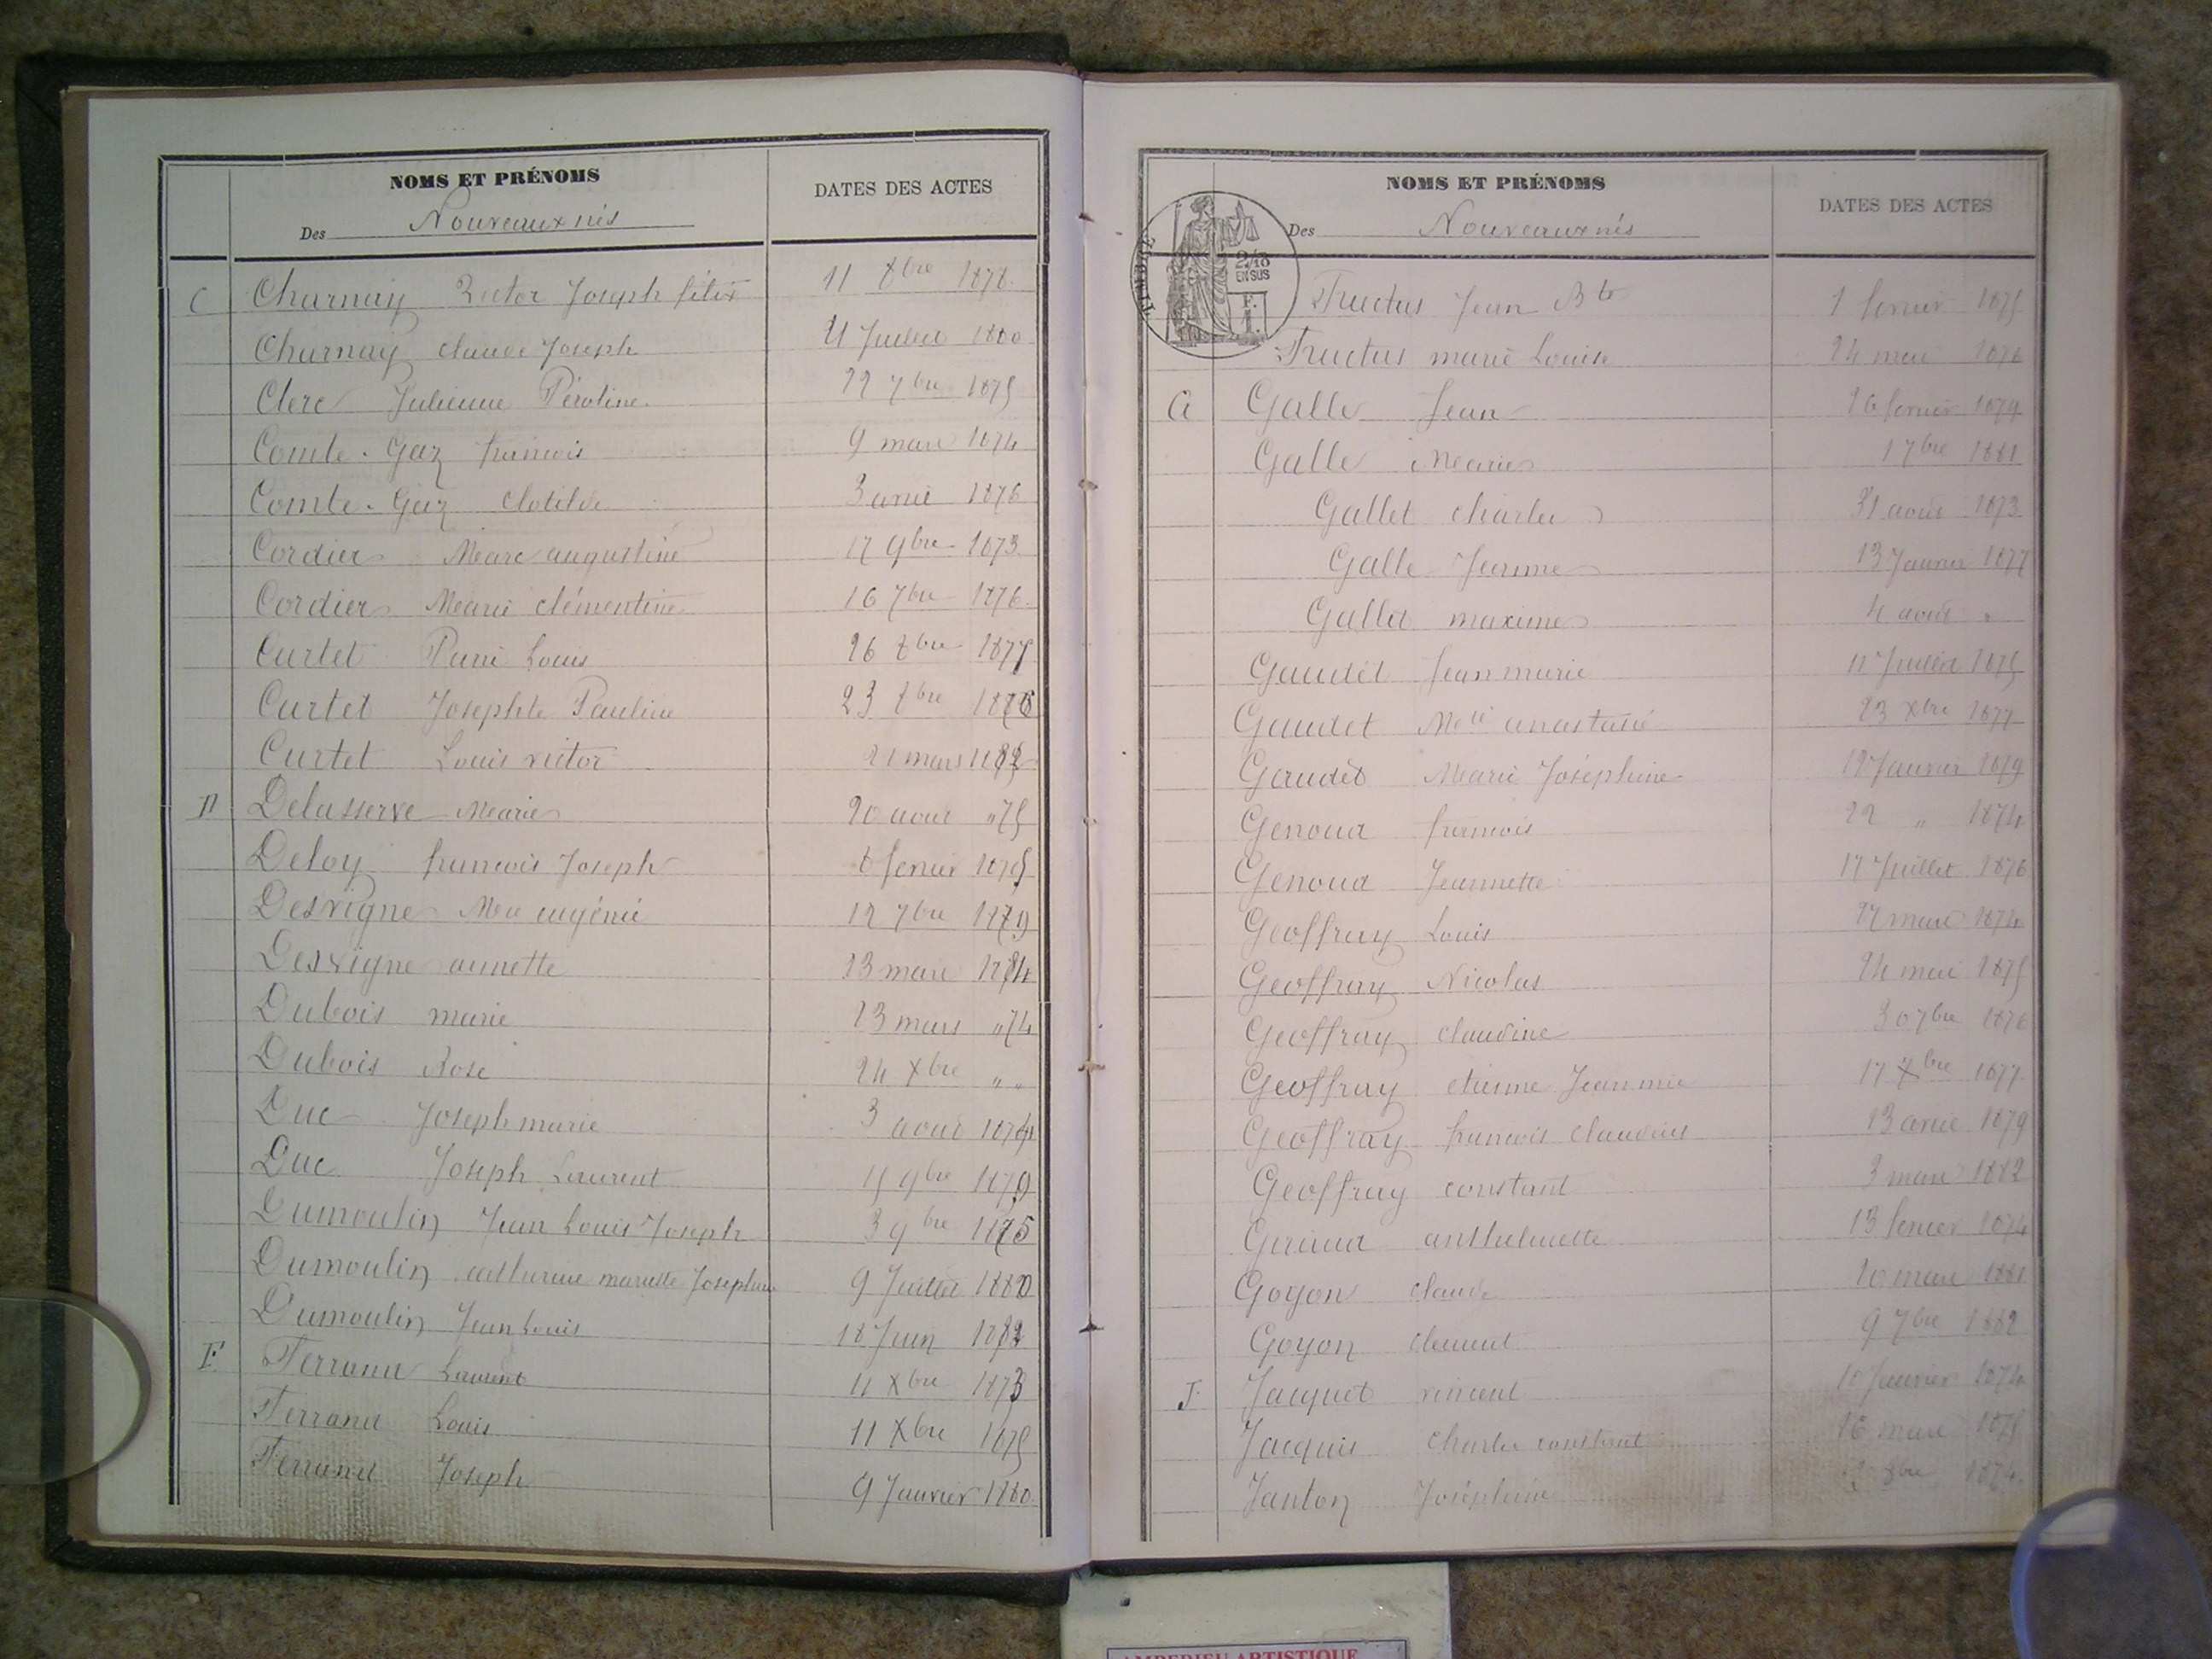 NOMS ET PRÉNOMS
DATES DES ACTES
Des Nouveaux nés
C Charnay Joseph félix 11 8bre 1878
Charnay claude Joseph 21 Juillet 1880
Clerc Julienne Péroline 22 7bre 1875
Comte-Gaz francois 9 mars 1874
Comte-Gaz Clotilde 3 avril 1876
Cordier Marc augustine 17 9bre 1873
Cordier Marie clémentine 16 7bre 1876
Curtet Louis 26 8bre 1877
Curtet Josephte Pauline 23 8bre
Curtet Louis victor 21 mars
D Delasserve Marie 20 aout "75
Deloy francois Joseph 6 fevrier 1875
Desvigne Mie eugénie 12 7bre 1879
Desvigne annette 13 mars
Dubois marie 23 mars "74
Dubois Rose 24 Xbre " "
Duc Joseph marie 3 aout 1874
Duc Joseph Laurent 15 9bre 1879
Dumoulin Jean Louis Joseph 3 9bre 1875
Dumoulin catherine mariette Josephine 9 Juillet 1880
Dumoulin Jean Louis 18 Juin 1882
F Ferrand Laurent 11 Xbre 1873
Ferrand Louis 11 Xbre 1875
Ferrand Joseph 9 Janvier 1880
NOMS ET PRÉNOMS
DATES DES ACTES
Des Nouveaux nés
TIMBRE
2/10
EN SUS
F.
1.
Fructus Jean Bte 1 fevrier 1875
Fructus marie Louise 24 mai 1876
G Galle Jean 26 fevrier 1879
Galle Marie 1 7bre 1881
Gallet charles 31 aout 1873
Galle Jeanne 13 Janvier 1877
Gallet maxime 4 aout "
Gaudet Jean marie 11 Juillet 1875
Gaudet Mie anastasie 23 Xbre 1877
Gaudet Marie Joséphine 12 Janvier 1879
Genoud francois 22 " 1874
Genoud Jeannette 17 Juillet 1876
Geoffray Louis 27 mars 1874
Geoffray Nicolas 24 mai 1875
Geoffray claudine 30 7bre 1876
Geoffray etienne Jean mie 17 Xbre 1877
Geoffray francois claudius 13 avril 1879
Geoffray constant 3 mars 1882
Giraud anthelmette 13 fevrier 1874
Goyon claude 20 mars 1881
Goyon clement 9 7bre 1882
J. Jacquet vincent 10 Janvier 1874
Jacquis Charles constant 16 mars 1875
Janton Joséphine 8bre 1874
AMBERIEU ARTISTIQUE